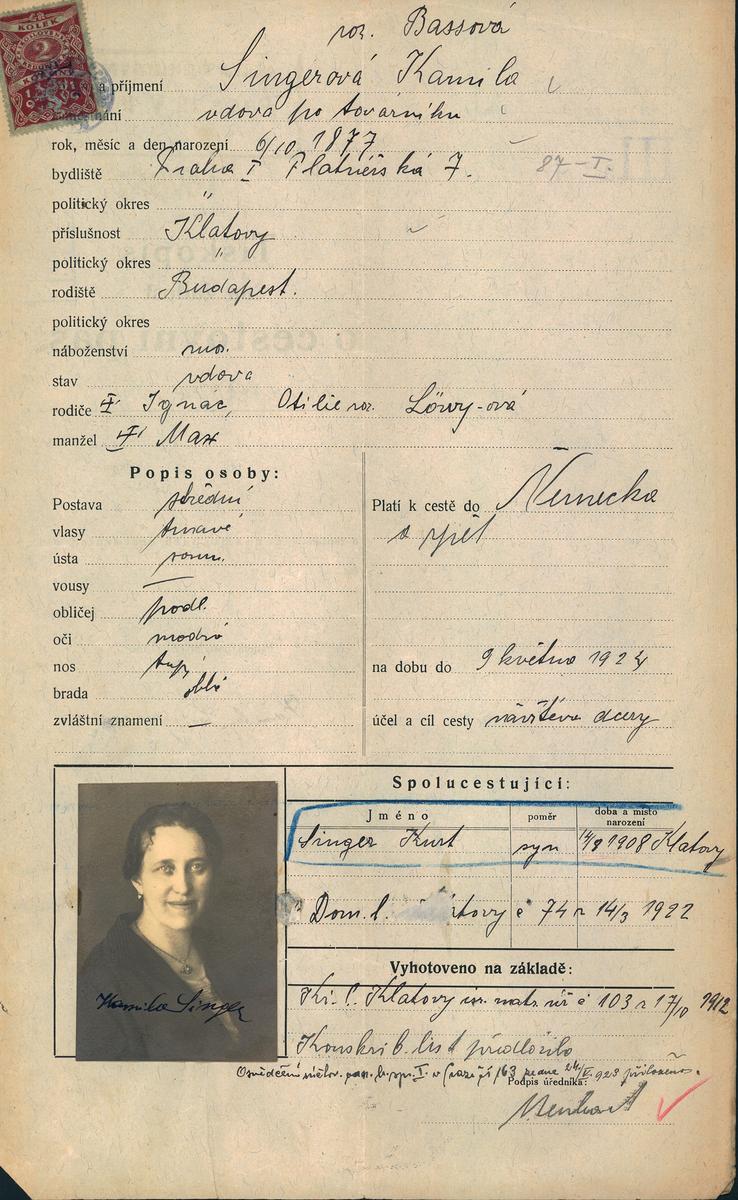 roz. Bassová
KOLEK
2
a příjmení Singerová Kamila
vdova po továrníku
rok, měsíc a den narození 6/10 1877
bydliště Praha I Platnéřská 7. 87-I.
politický okres "
příslušnost Klatovy
politický okres "
rodiště Budapest.
politický okres
náboženství mos.
stav vdova
rodiče Ignác, Otilie roz. Löwy-ová
manžel Max
Popis osoby:
Postava střední
vlasy tmavé
ústa soum.
vousy —
obličej podl.
oči modré
nos tupý
brada oblá
zvláštní znamení —
Platí k cestě do Německa
a zpět
na dobu do 9 května 1924
účel a cíl cesty návštěva dcery
Spolucestující:
Jméno poměr doba a místo narození
Singer Kurt syn 14/8 1908 Klatovy
Dom. l. č 74 z 14/3 1922
Vyhotoveno na základě:
Kř. l. Klatovy isr. matr. úř č 103 z 17/10 1912
Konskripč. list předložila
přiloženo.
Podpis úředníka:
Kamila Singer